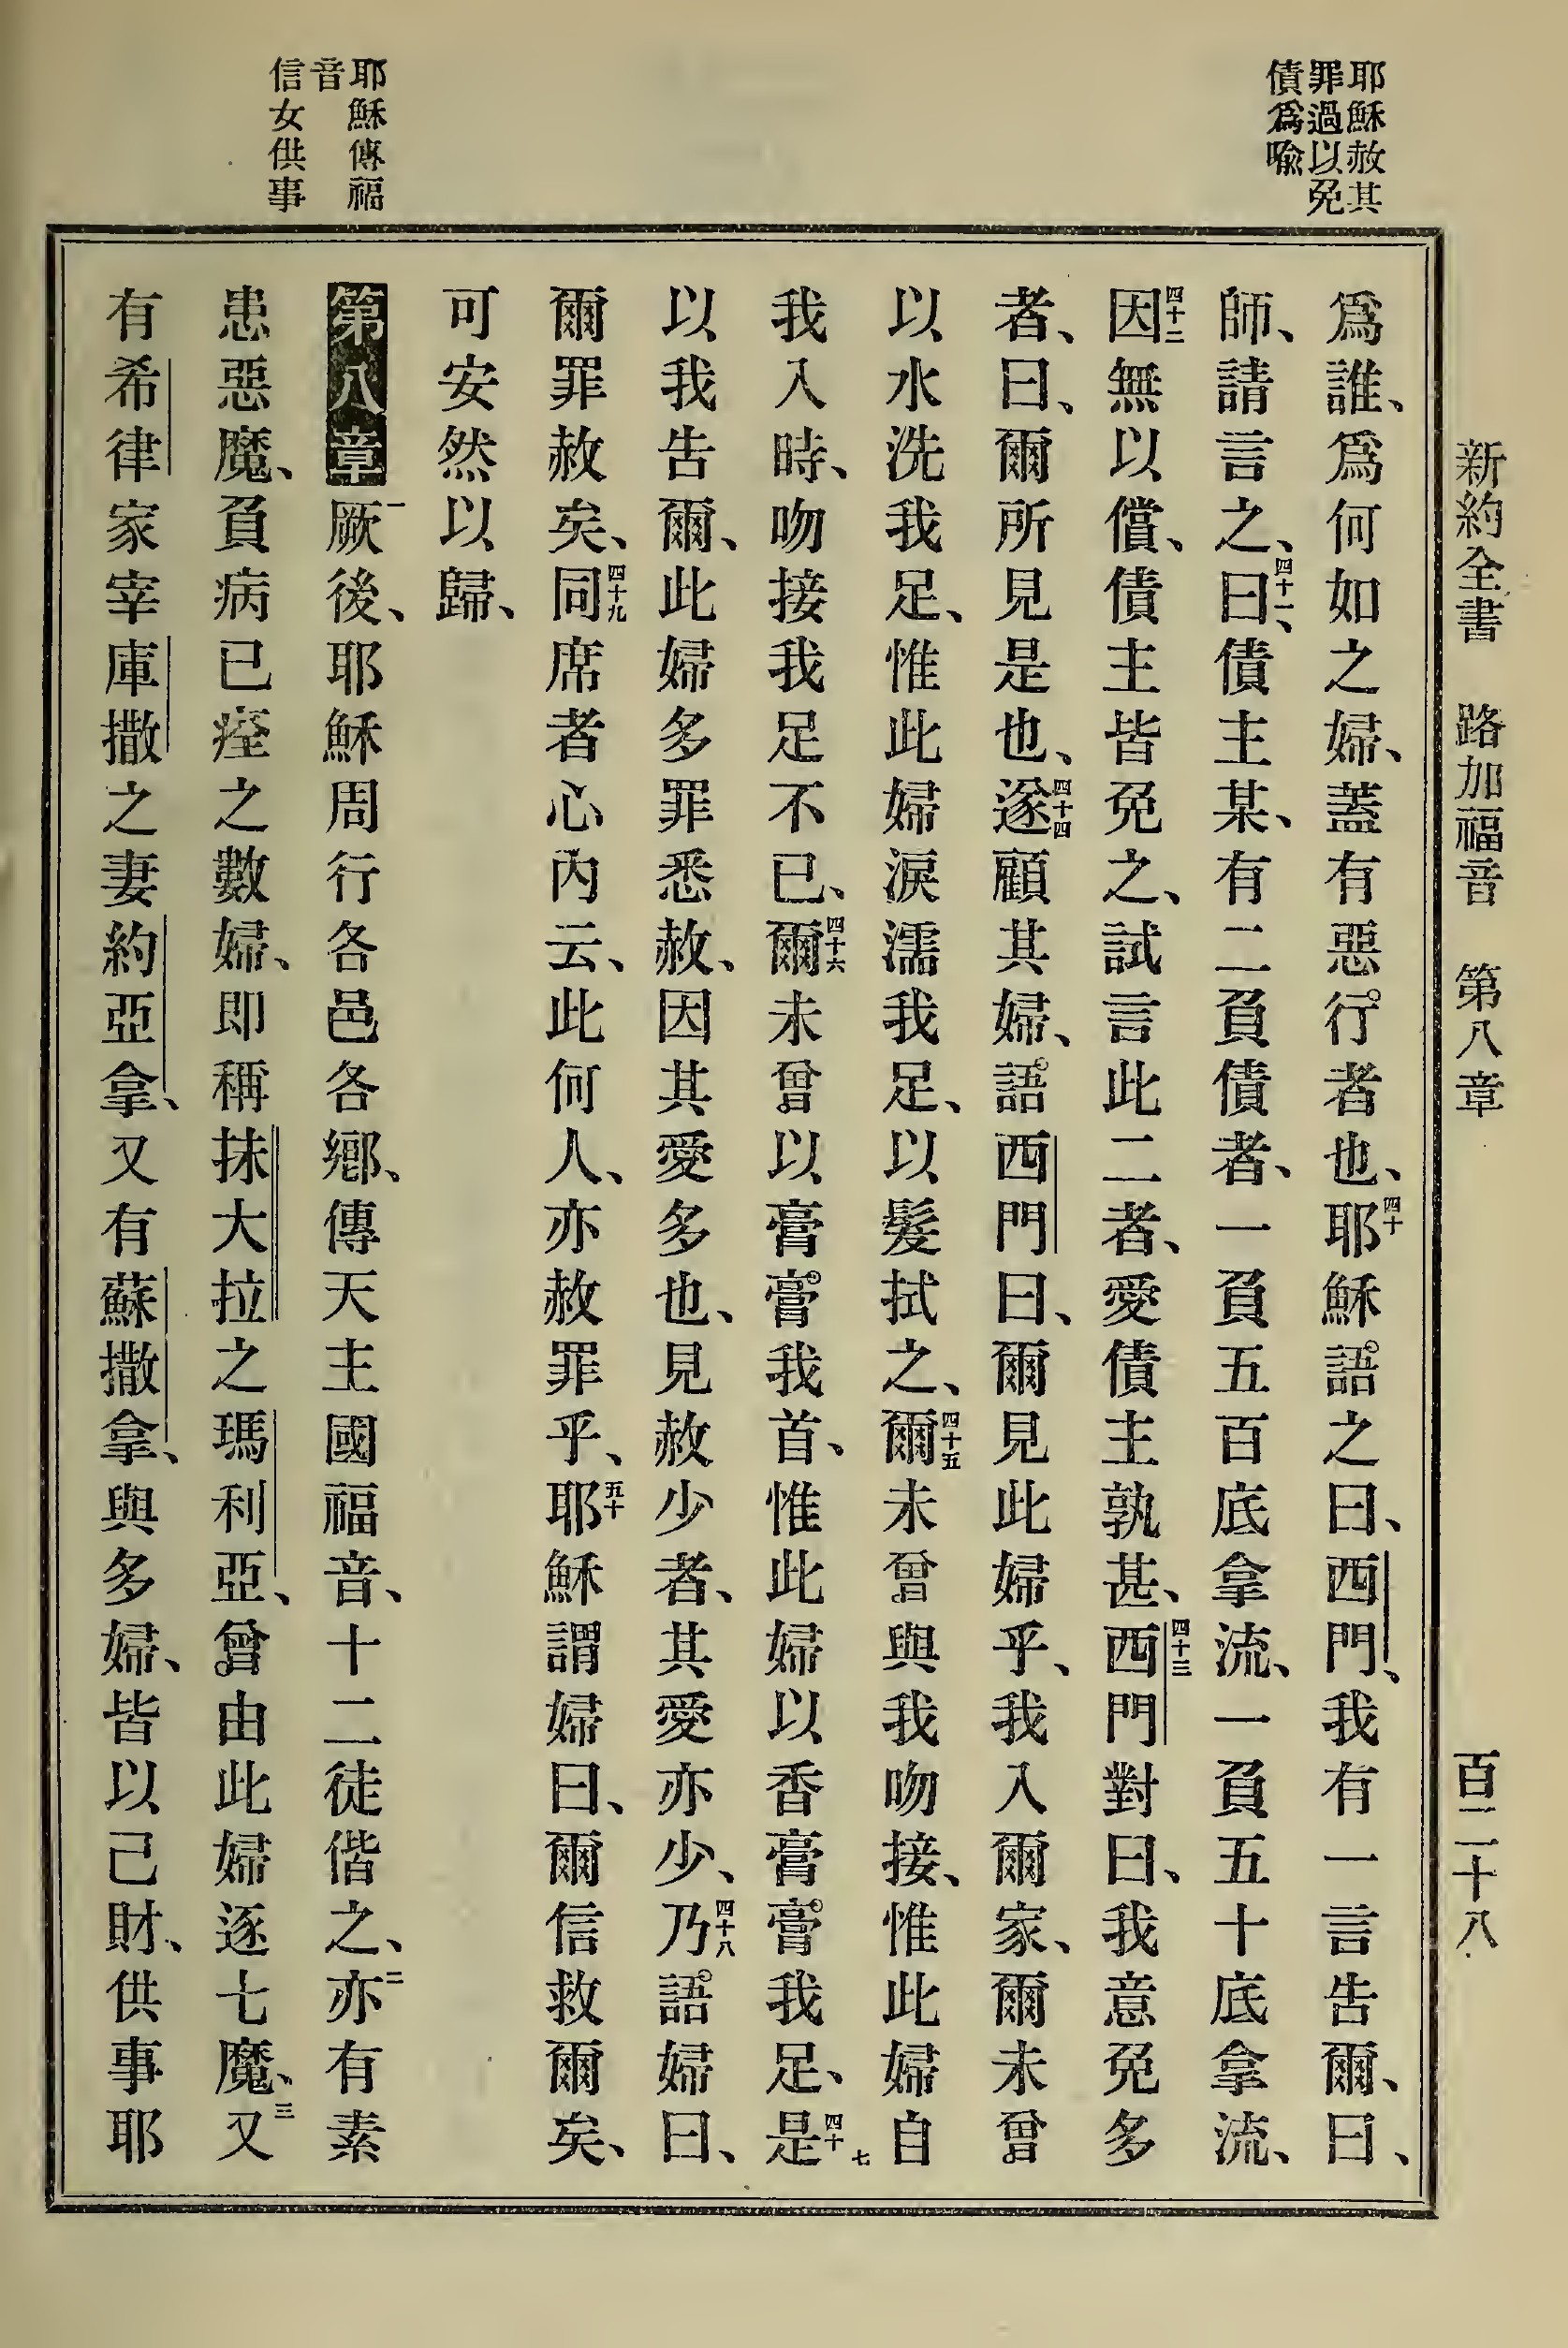 新約全書　路加福音　第八章　百二十八
耶穌赦其
罪過以免
債爲喩
耶穌傳福
音
信女供事
爲誰、爲何如之婦、蓋有惡行者也、四十耶穌語之曰、西門、我有一言告爾、曰、
師、請言之、四十一曰、債主某、有二負債者、一負五百底拿流、一負五十底拿流、
四十二因無以償、債主皆免之、試言此二者、愛債主孰甚、四十三西門對曰、我意免多
者、曰、爾所見是也、四十四遂顧其婦、語西門曰、爾見此婦乎、我入爾家、爾未曾
以水洗我足、惟此婦淚濡我足、以髮拭之、四十五爾未曾與我吻接、惟此婦自
我入時、吻接我足不已、四十六爾未曾以膏膏我首、惟此婦以香膏膏我足、四十七是
以我告爾、此婦多罪悉赦、因其愛多也、見赦少者、其愛亦少、四十八乃語婦曰、
爾罪赦矣、四十九同席者心內云、此何人、亦赦罪乎、五十耶穌謂婦曰、爾信救爾矣、
可安然以歸、
第八章 一厥後、耶穌周行各邑各鄉、傳天主國福音、十二徒偕之、二亦有素
患惡魔、負病已痊之數婦、即稱抹大拉之瑪利亞、曾由此婦逐七魔、三又
有希律家宰庫撒之妻約亞拿、又有蘇撒拿、與多婦、皆以己財、供事耶